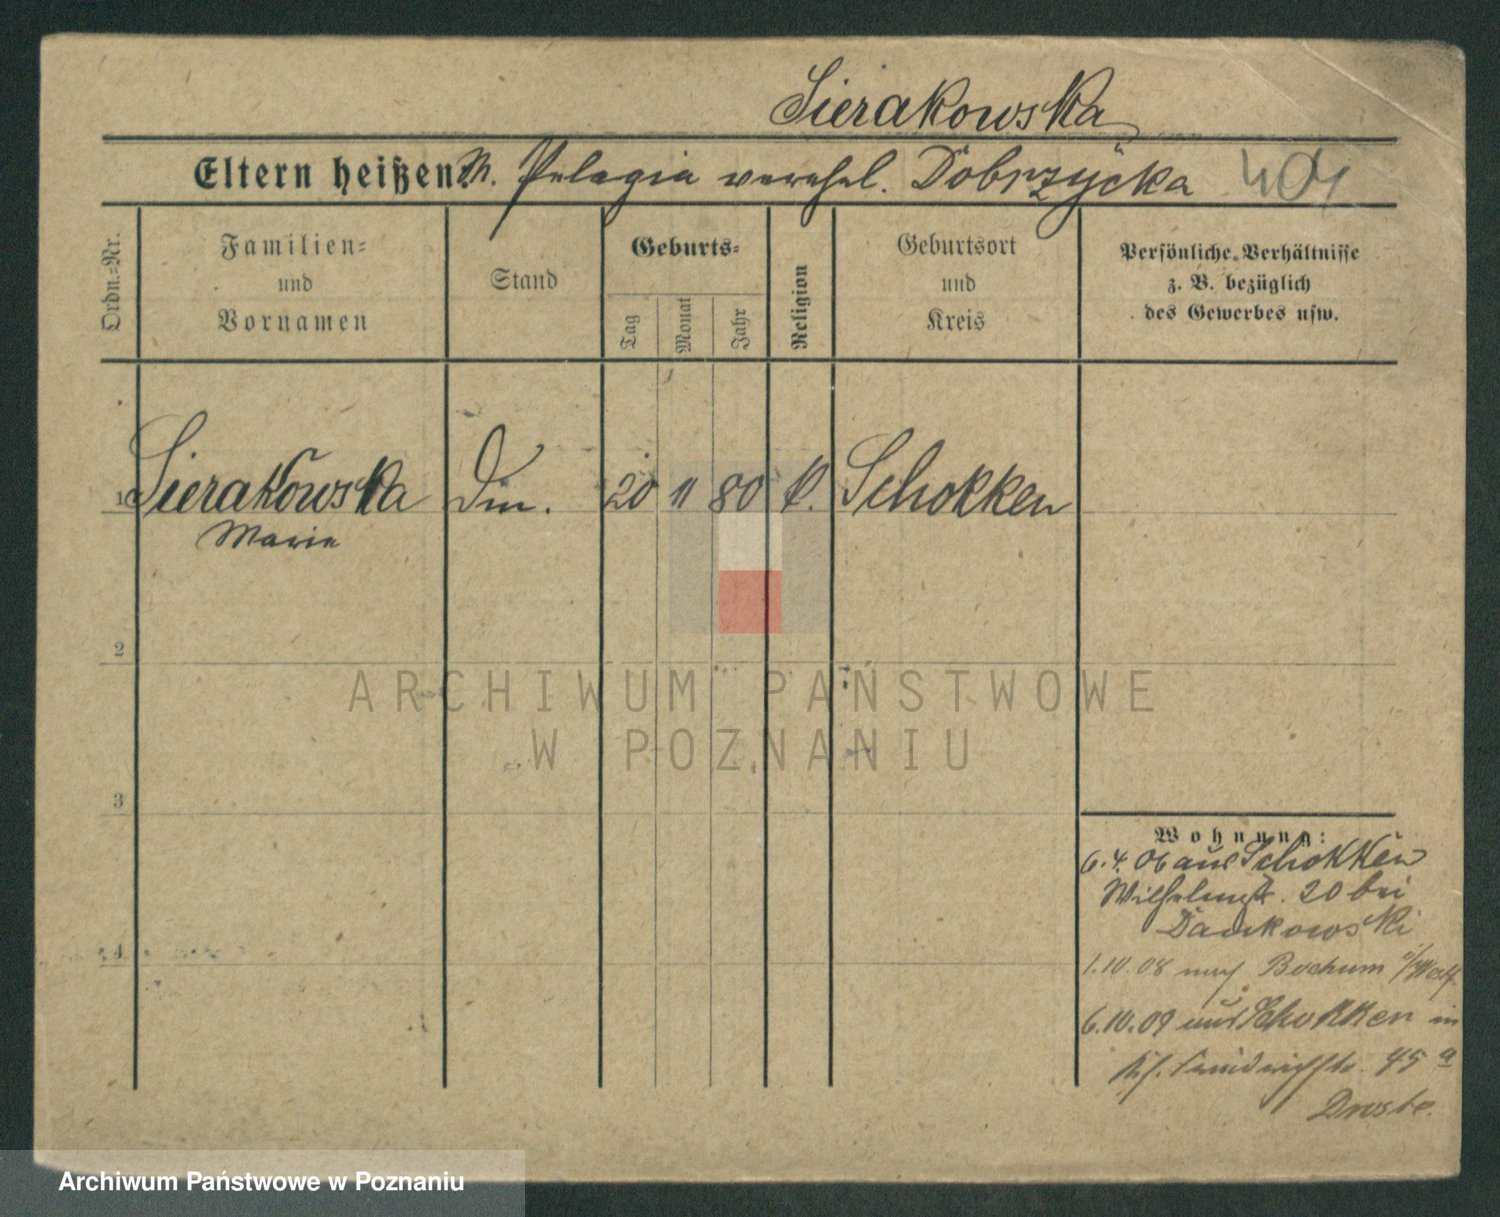 Sierakowska
Eltern heißen: M. Pelagia verehel. Dobrzycka
Ordn.=Nr.
Familien=
und
Vornamen
Stand
Geburts=
Tag
Monat
Jahr
Religion
Geburtsort
und
Kreis
Persönliche Verhältnisse
z. B. bezüglich
des Gewerbes usw.
1 Sierakowska Din. 20 11 80 k. Schokken
Marie
2
3
4
Wohnung:
6.4.06 aus Schokken
Wilhelmstr. 20 bei
Dankowski
1.10.08 nach Bochum i/Westf.
6.10.09 aus Schokken in
45 a
Droste.
ARCHIWUM PAŃSTWOWE
W POZNANIU
Archiwum Państwowe w Poznaniu